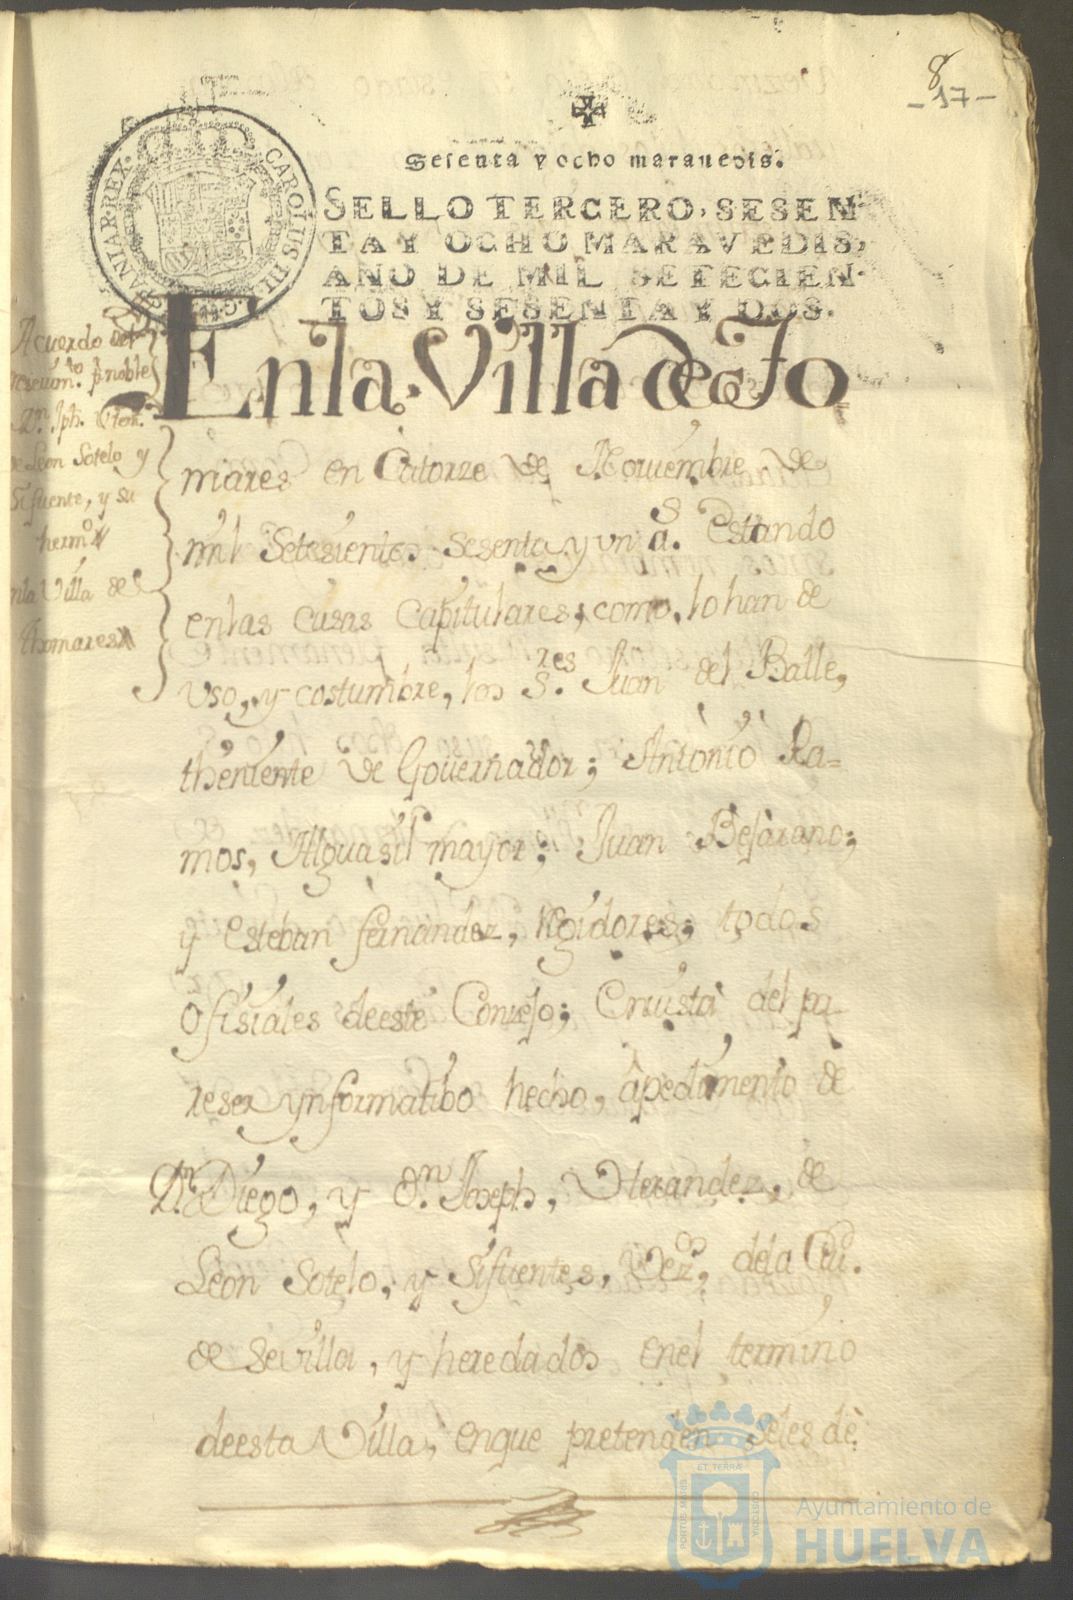 8
-17-
Sesenta y ocho marauedis.
SELLO TERCERO, SESEN
TA Y OCHO MARAVEDIS,
AÑO DE MIL SETECIEN-
TOS Y SESENTA Y DOS.
CAROLUS III
HISPANIAR·REX·
Acuerdo del
p.r noble
Dn. Jph.
de Leon Sotelo y
Sifuente, y su
hermo.
en la Villa de
thomares
En la Villa de To
mares en Catorze de Nouiembre de
mil Setesientos sesenta y un as. estando
en las casas Capitulares, como lo han de
uso, y costumbre, los Sres. Juan del Balle,
theniente de Gouernador; Antonio Ra=
mos, Alguasil mayor; Juan Bejarano;
y esteban fernandez, Regidores; todos
Ofisiales de este Consejo; En uista del pa-
reser ynformatibo hecho, a pedimento de
Dn. Diego, y Dn. Joseph, de
Leon Sotelo, y Sifuentes, Vezos. de la Ciu.
de Sevilla, y heredados en el termino
de esta Villa, en que pretenden seles dè
PORTUS MARIS
ET TERRÆ
CUSTODIA
Ayuntamiento de
HUELVA